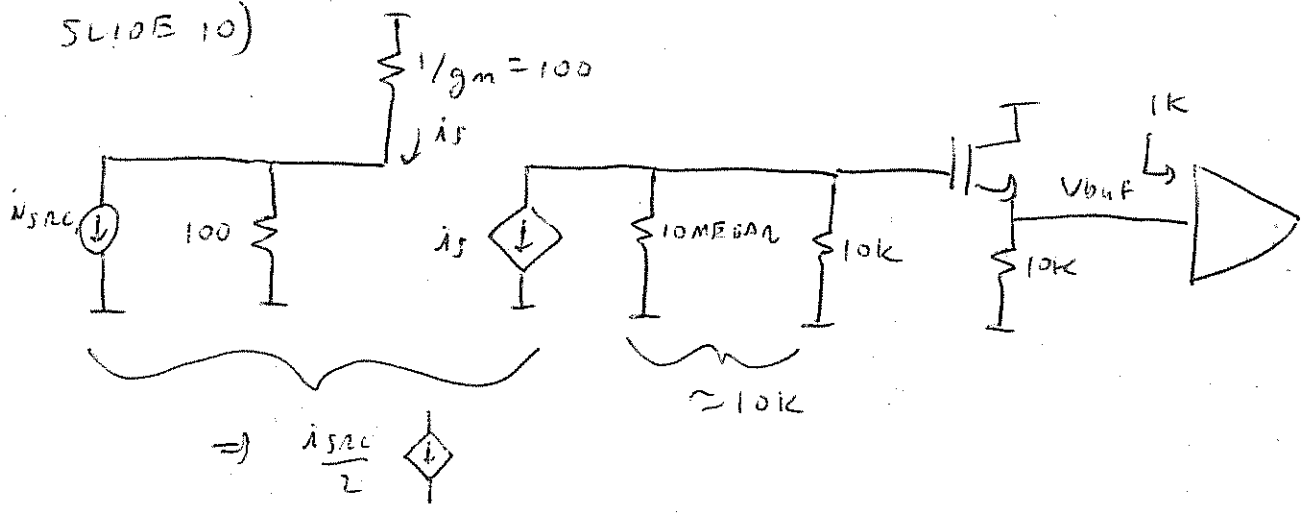 SLIDE 10)
1/gm = 100
is
1K
iSRC
100
is
10MEGAΩ
10K
Vbuf
10K
≃10K
=) iSRC/2